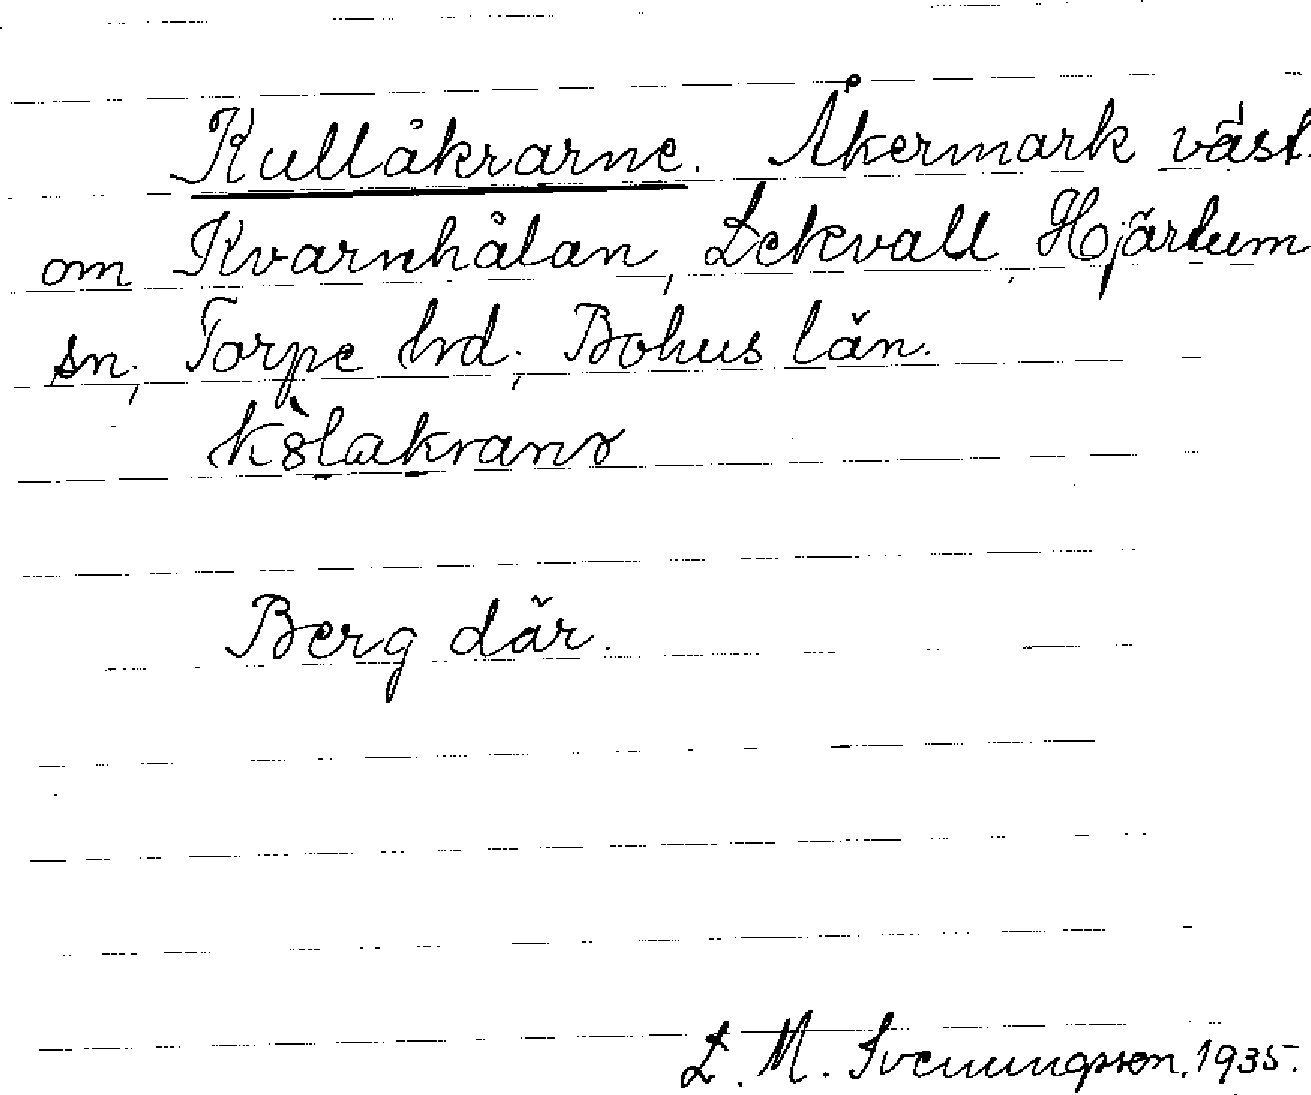 Kullåkrarne. Åkermark väst.
om Kvarnhålan, Lekvall, Hjärtum
sn, Torpe hrd, Bohus län.
Berg där.
L. M. Svenungsson, 1935.